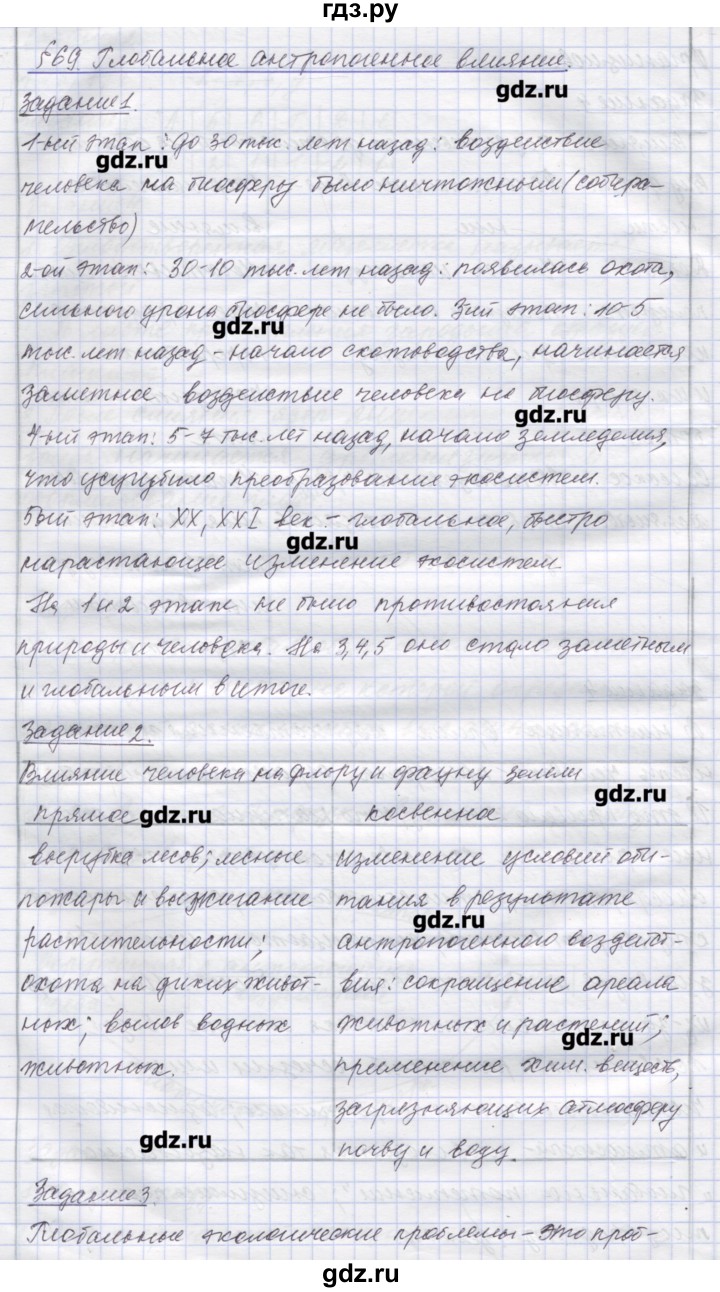 гдз.ру
§69. Глобальное антропогенное влияние.
gdz.ru
Задание 1.
1-ый этап: до 30 тыс. лет назад: воздействие
gdz.ru
человека на биосферу было ничтожным (собира-
тельство)
2-ой этап: 30-10 тыс. лет назад: появилась охота,
сильного урона биосфере не было. 3ий этап: 10-5
gdz.ru
тыс. лет назад - начало скотоводства, начинается
заметное воздействие человека на биосферу.
gdz.ru
4-ый этап: 5-7 тыс. лет назад, начало земледелия,
что усугубило преобразование экосистем.
5ый этап: XX, XXI век - глобальное, быстро
gdz.ru
нарастающее изменение экосистем
На 1 и 2 этапе не было противостояния
природы и человека. На 3,4,5 оно стало заметным
и глобальным в итоге.
Задание 2.
Влияние человека на флору и фауну земли
gdz.ru
прямое gdz.ru косвенное
вырубка лесов; лесные
пожары и выжигание
растительности;
охота на диких живот-
ных; вылов водных
животных.
изменение условий оби-
тания в результате
gdz.ru
антропогенного воздейст-
вия: сокращение ареала
животных и растений;
gdz.ru
применение хим. веществ,
загрязняющих атмосферу
почву и воду.
gdz.ru
Задание 3
Глобальные экологические проблемы - это проб-
gdz.ru